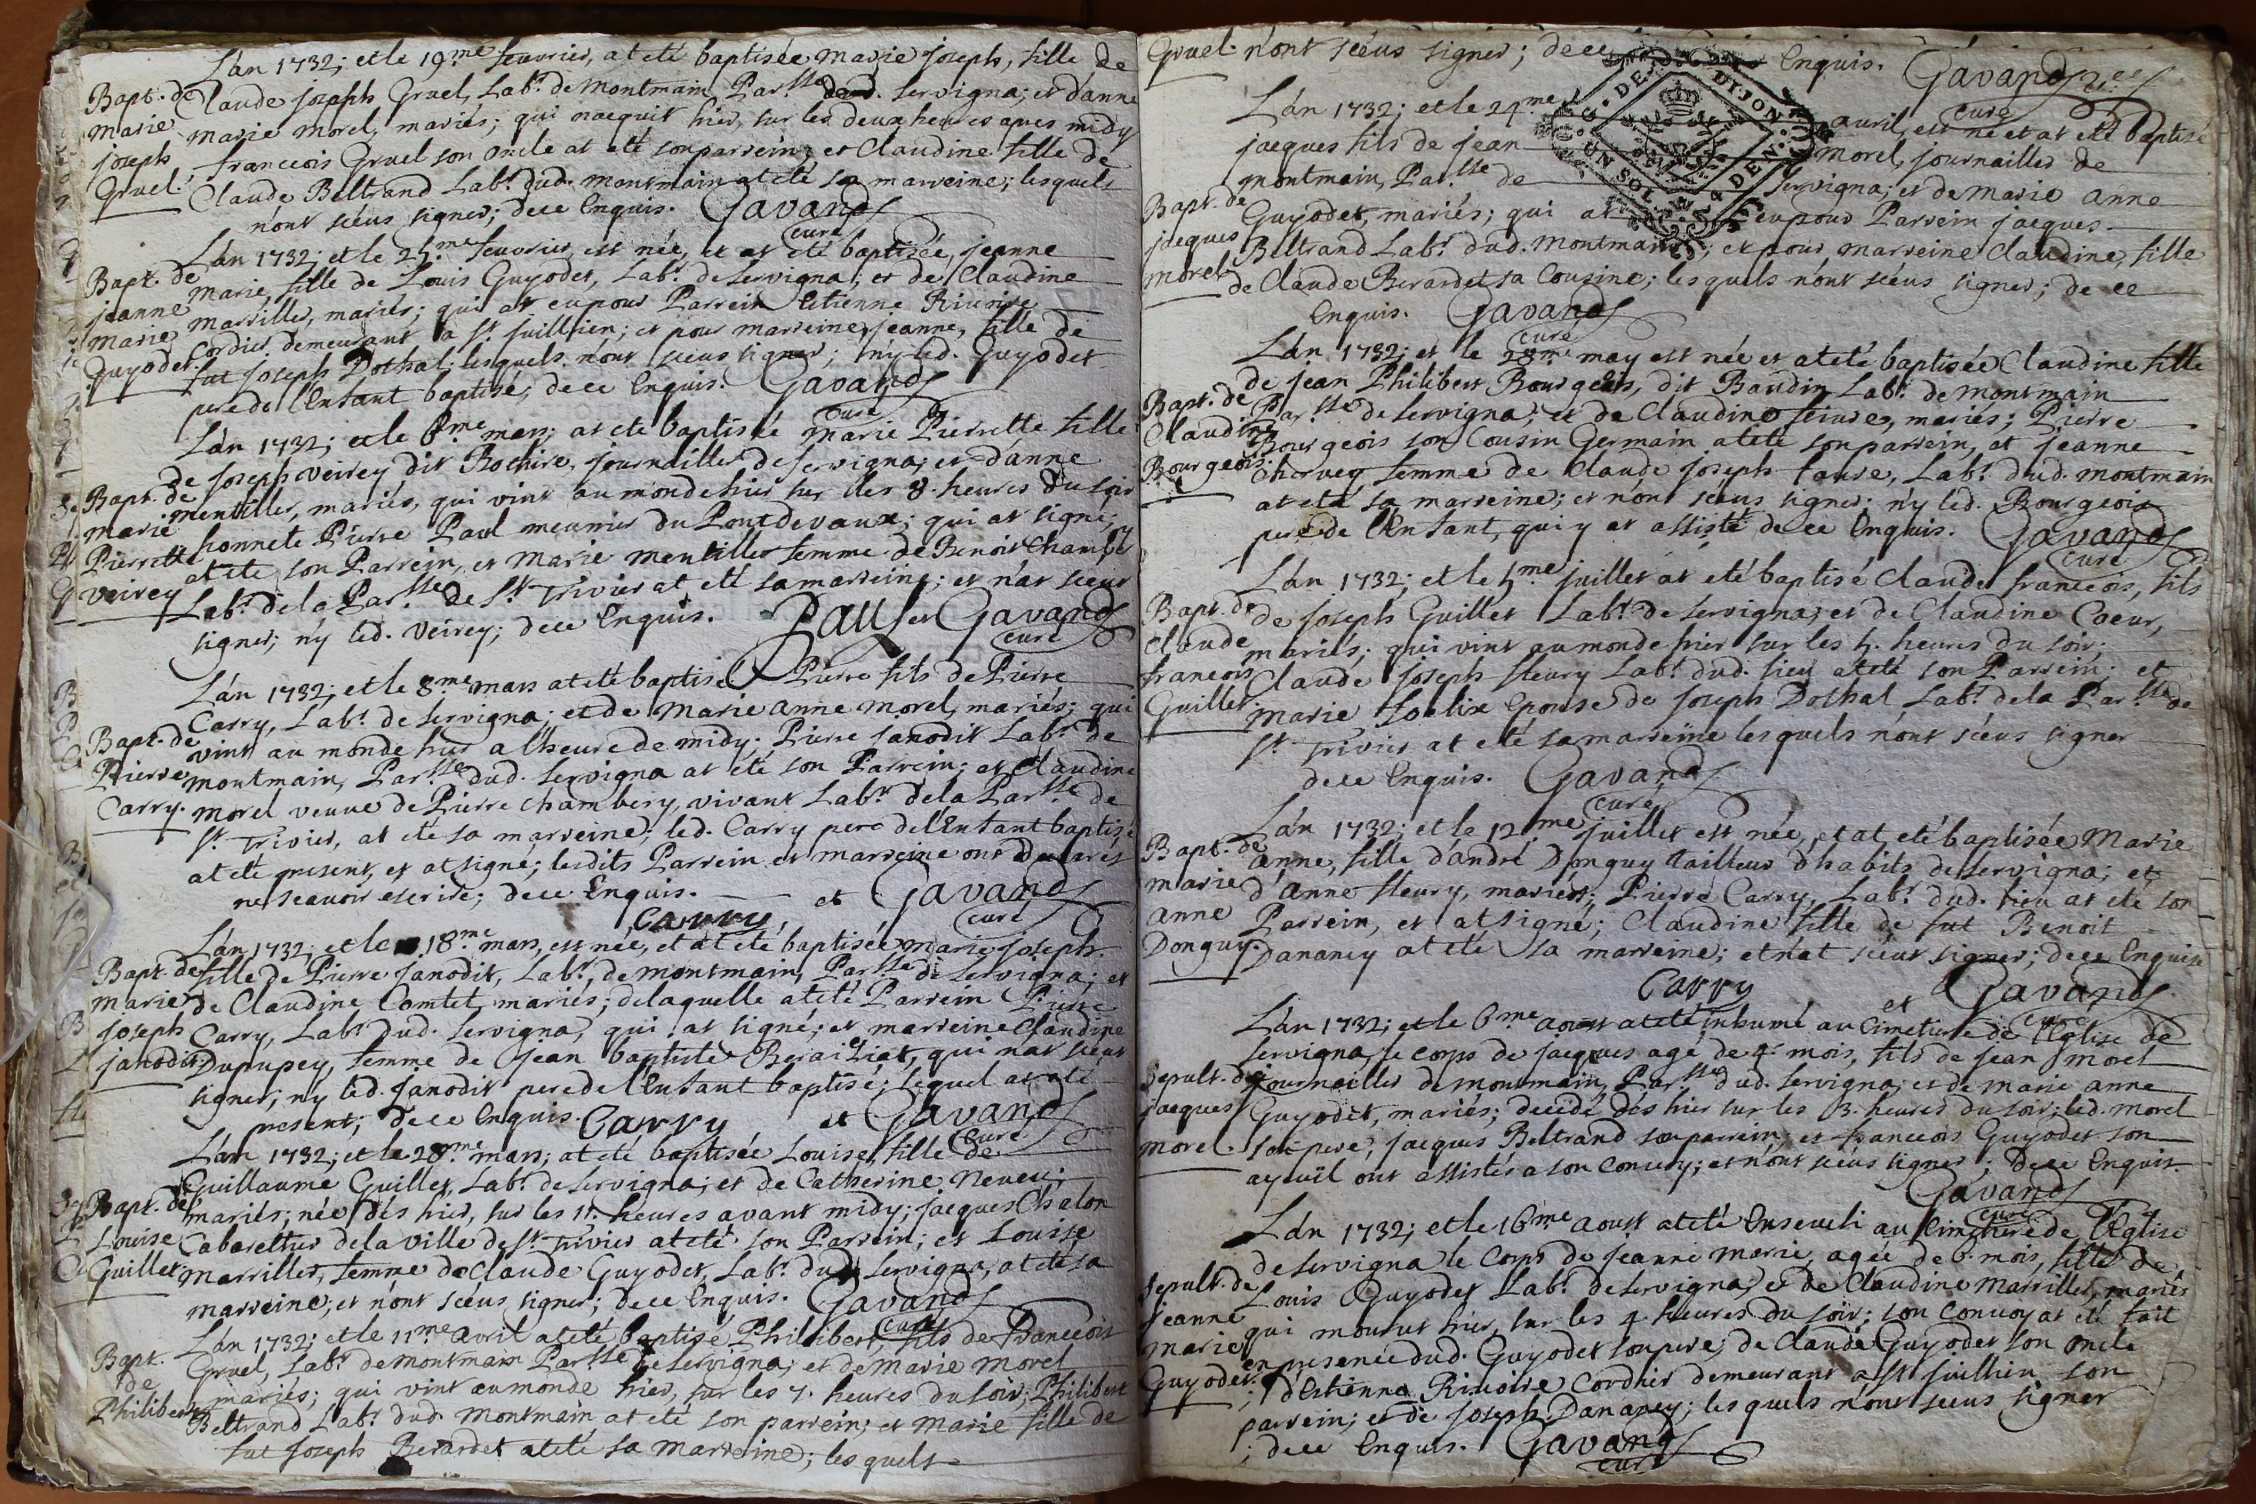 L'an 1732; et le 19.me feuvrier, at eté baptisée Marie joseph, fille de
Bapt. de Claude joseph Gruel, Lab.r de montmain Par.sse dud. servigna; et d'anne
marie marie morel, mariés; qui nacquit hier, sur les deux heures apres midy
joseph francois Gruel son oncle at eté son parrein; et Claudine fille de
Gruel. Claude Beltrand Lab.r dud. montmain at eté sa marreine; lesquels
n'ont scéus signer; de ce Enquis. Gavand
curé
L'an 1732; et le 25.me feuvrier, est née, et at eté baptisée, jeanne
Bapt. de marie, fille de Louis Guyodet, Lab.r de servigna, et de Claudine
jeanne marriller, mariés; qui at eu pour Parrein etienne Riuoire
marie Cordier demeurant a s.t juillien; et pour marreine, jeanne, fille de
Guyodet. fut joseph Dothal; lesquels n'ont scéus signer; n'y led. Guyodet
pere de l'Enfant baptisé; de ce Enquis. Gavand
curé
L'an 1732; et le 6.me mars; at eté baptisée marie Pierrette fille
de joseph veirey dit Bochire, journailler de servigna; et d'anne
Bapt. de mentiller, mariés, qui vint au monde hier sur les 8. heures du soir
marie honnete Pierre Paul meunier du Pontdevaux; qui at signé;
Pierrette at eté son Parrein, et Marie mentiller femme de Benoit Chambé
veirey Lab.r de la Par.sse de S.t Trivier at eté sa marreine; et n'at scéut
signer; n'y led. veirey; de ce Enquis. Paul et Gavand
curé
L'an 1732; et le 8.me mars at eté baptisé Pierre fils de Pierre
Carry, Lab.r de servigna; et de marie anne morel, mariés; qui
Bapt. de vint au monde hier a l'heure de midy; Pierre janodit Lab.r de
Pierre montmain, Par.sse dud. servigna at eté son Parrein; et Claudine
Carry. morel veuve de Pierre Chambery, vivant Lab.r de la Par.sse de
s.t Trivier, at eté sa marreine; led. Carry pere de l'Enfant baptisé
at eté present, et at signé; lesdits Parrein et marreine ont declarés
ne scavoir escrire; de ce Enquis. et Gavand
Carry curé
L'an 1732; et le 18.me mars, est née, et at eté baptisée marie joseph
Bapt. de fille de Pierre janodit, Lab.r, de montmain, Par.sse de servigna; et
marie de Claudine Comtet, mariés; de laquelle at eté Parrein Pierre
joseph Carry, Lab.r dud. servigna, qui at signé; et marreine Claudine
janodit. Dupupey, femme de jean baptiste Beraitiat, qui n'at scéut
signer; n'y led. janodit pere de l'Enfant baptisé; lequel at eté
present; de ce Enquis. Carry et Gavand
curé
L'an 1732; et le 28.me mars; at eté baptisée Louise, fille de
Guillaume Guillet, Lab.r de servigna; et de Catherine Neveu;
Bapt. de mariés; née dés hier, sur les 11. heures avant midy; jacques Chalon
Louise Cabarettier de la ville de s.t Trivier at eté son Parrein; et Louise
Guillet marriller, femme de Claude Guyodet, Lab.r dud. servigna, at eté sa
marreine; et n'ont scéus signer; de ce Enquis. Gavand
curé
L'an 1732; et le 11.me avril at eté baptisé Philibert, fils de francois
Bapt. Gruel, Lab.r de montmain Par.sse de servigna; et de Marie morel
de mariés; qui vint au monde hier, sur les 7. heures du soir; Philibert
Philibert Beltrand Lab.r dud. montmain at eté son parrein; et marie fille de
fut joseph Berardet at eté sa marreine; lesquels
Gruel. n'ont scéus signer; de ce Enquis. Gavand
curé
G. DE DIJON
UN SOL 4 DEN.
L'an 1732; et le 24.me avril, est né et at eté baptisé
jacques fils de jean morel, journailler de
montmain, Par.sse de servigna; et de marie anne
Bapt. de Guyodet, mariés; qui at eu pour Parrein jacques
jacques Beltrand Lab.r dud. montmain; et pour marreine Claudine, fille
morel de Claude Berardet sa Cousine; lesquels n'ont scéus signer; de ce
Enquis. Gavand
curé
L'an 1732; et le 28.me may est née et at eté baptisée Claudine fille
de jean Philibert Bourgeois, dit Baudin Lab.r de montmain
Bapt. de Par.sse de servigna; et de Claudine mariés; Pierre
Claudine Bourgeois son Cousin Germain at eté son parrein, et jeanne
Bourgeois. Chervey femme de Claude joseph faure, Lab.r dud. montmain
at eté sa marreine; et n'ont scéus signer; n'y led. Bourgeois
pere de l'Enfant, qui y at assisté de ce Enquis. Gavand
curé
L'an 1732; et le 5.me juillet at eté baptisé Claude francois, fils
Bapt. de de joseph Guillet Lab.r de servigna; et de Claudine Coeur,
Claude mariés; qui vint au monde hier sur les 5. heures du soir;
francois Claude joseph fleury Lab.r dud. lieu at eté son Parrein; et
Guillet. marie foelix Epouse de joseph Dothal Lab.r de la Par.sse de
s.t Trivier at eté sa marreine lesquels n'ont scéus signer
de ce Enquis. Gavand
curé
L'an 1732; et le 12.me juillet est née, et at eté baptisée Marie
Bapt. de anne, fille d'andré Donguy tailleur d'habits de servigna; et
marie d'Anne fleury, mariés; Pierre Carry, Lab.r dud. lieu at eté son
anne Parrein, et at signé; Claudine fille de fut Benoit
Donguy. Danancy at eté sa marreine; et n'at scéut signer; de ce Enquise
Carry et Gavand
curé
L'an 1732; et le 6.me aoust at eté inhumé au Cimetiere de l'Eglise de
servigna, le corps de jacques agé de 4. mois, fils de jean morel
Sepult. de journailler de montmain, Par.sse dud. servigna; et de marie anne
jacques Guyodet, mariés; decedé dés hier sur les 3. heures du soir; led. morel
morel. son pere, jacques Beltrand son parrein, et francois Guyodet son
ayeuil ont assistés a son Convoy; et n'ont scéus signer; de ce Enquis.
Gavand
curé
L'an 1732; et le 16.me aoust at eté Enseveli au Cimetiere de l'Eglise
de servigna le Corps de jeanne marie, agée de 6. mois, fille de
Sepult. de Louis Guyodet Lab.r de servigna, et de Claudine marriller, mariés
jeanne qui mourut hier, sur les 4 heures du soir; son convoy at eté fait
marie en presence dud. Guyodet son pere, de Claude Guyodet son oncle
Guyodet. ; d'Estienne Rivoire Cordier demeurant a s.t juillien son
parrein; et de joseph Danancy; lesquels n'ont scéus signer
; de ce Enquis. Gavand
curé